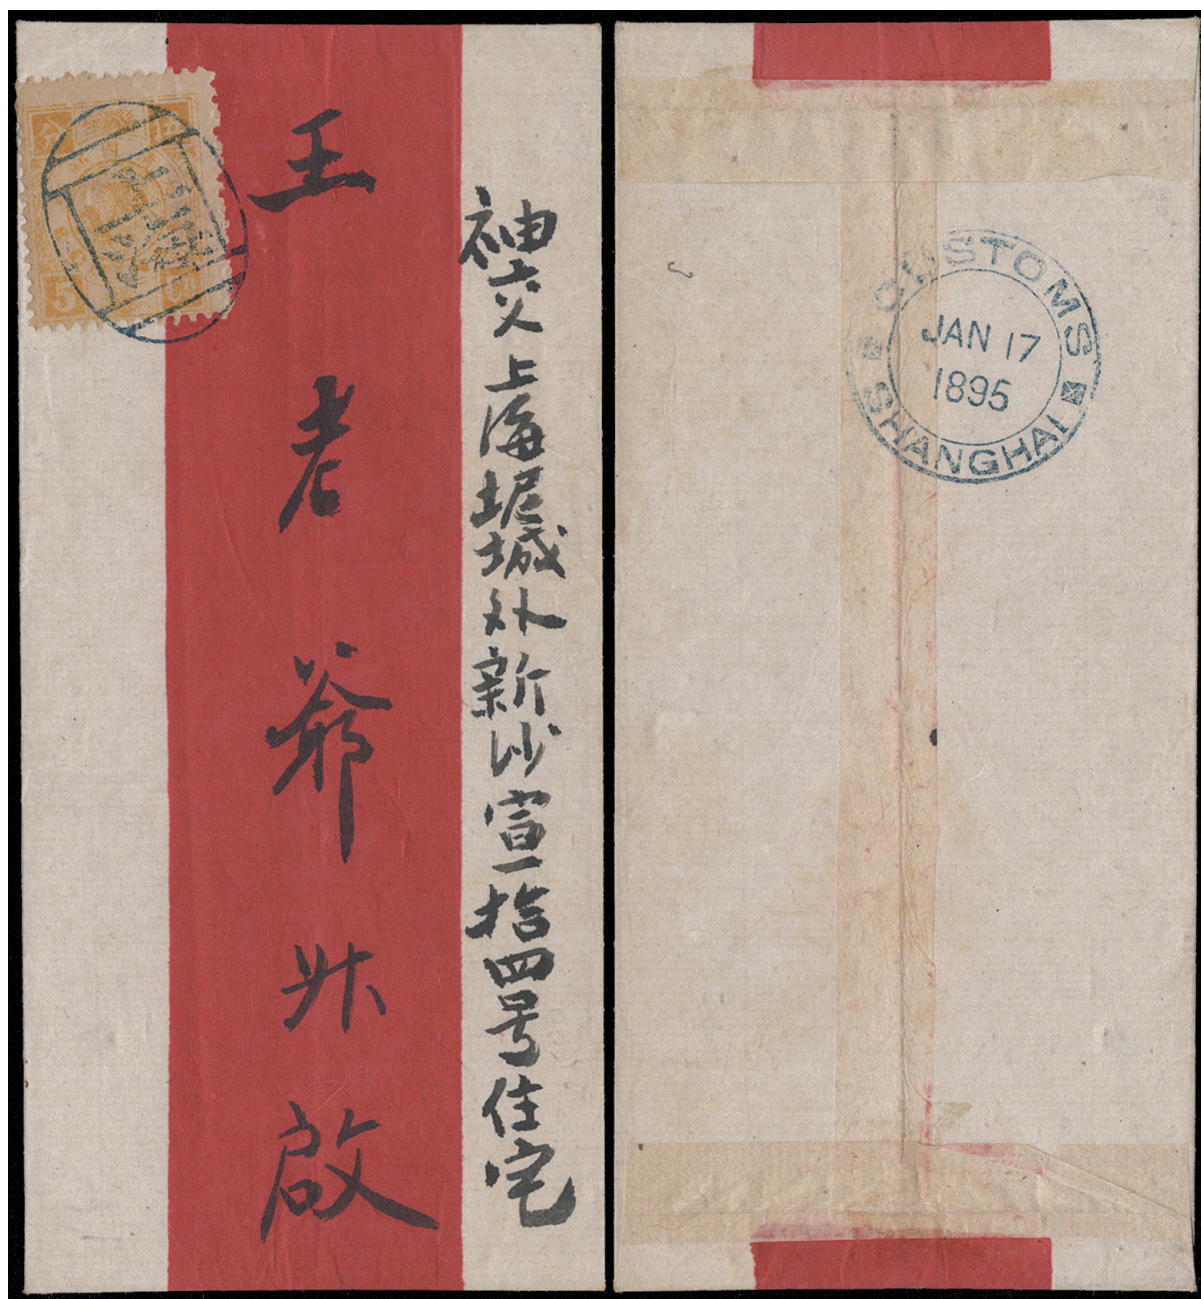 上海
伍
分
5
袖交上海坭城外新沙宣一拾四号住宅
王老爺升啟
CUSTOMS
JAN 17
1895
SHANGHAI